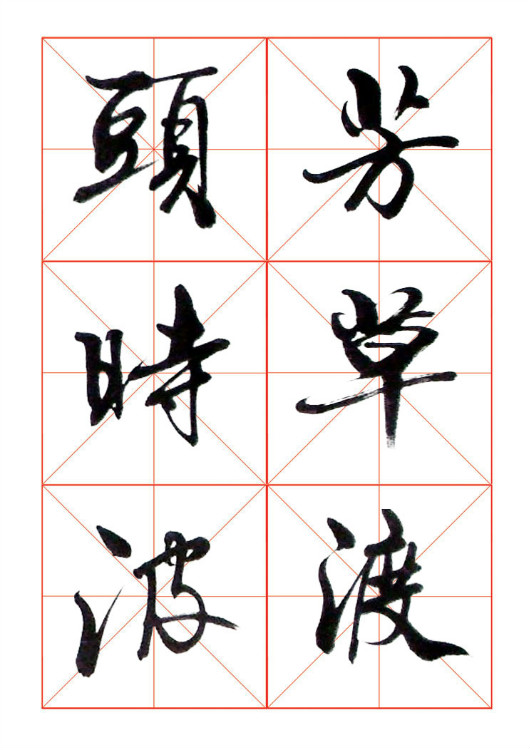 芳草渡
頭時波